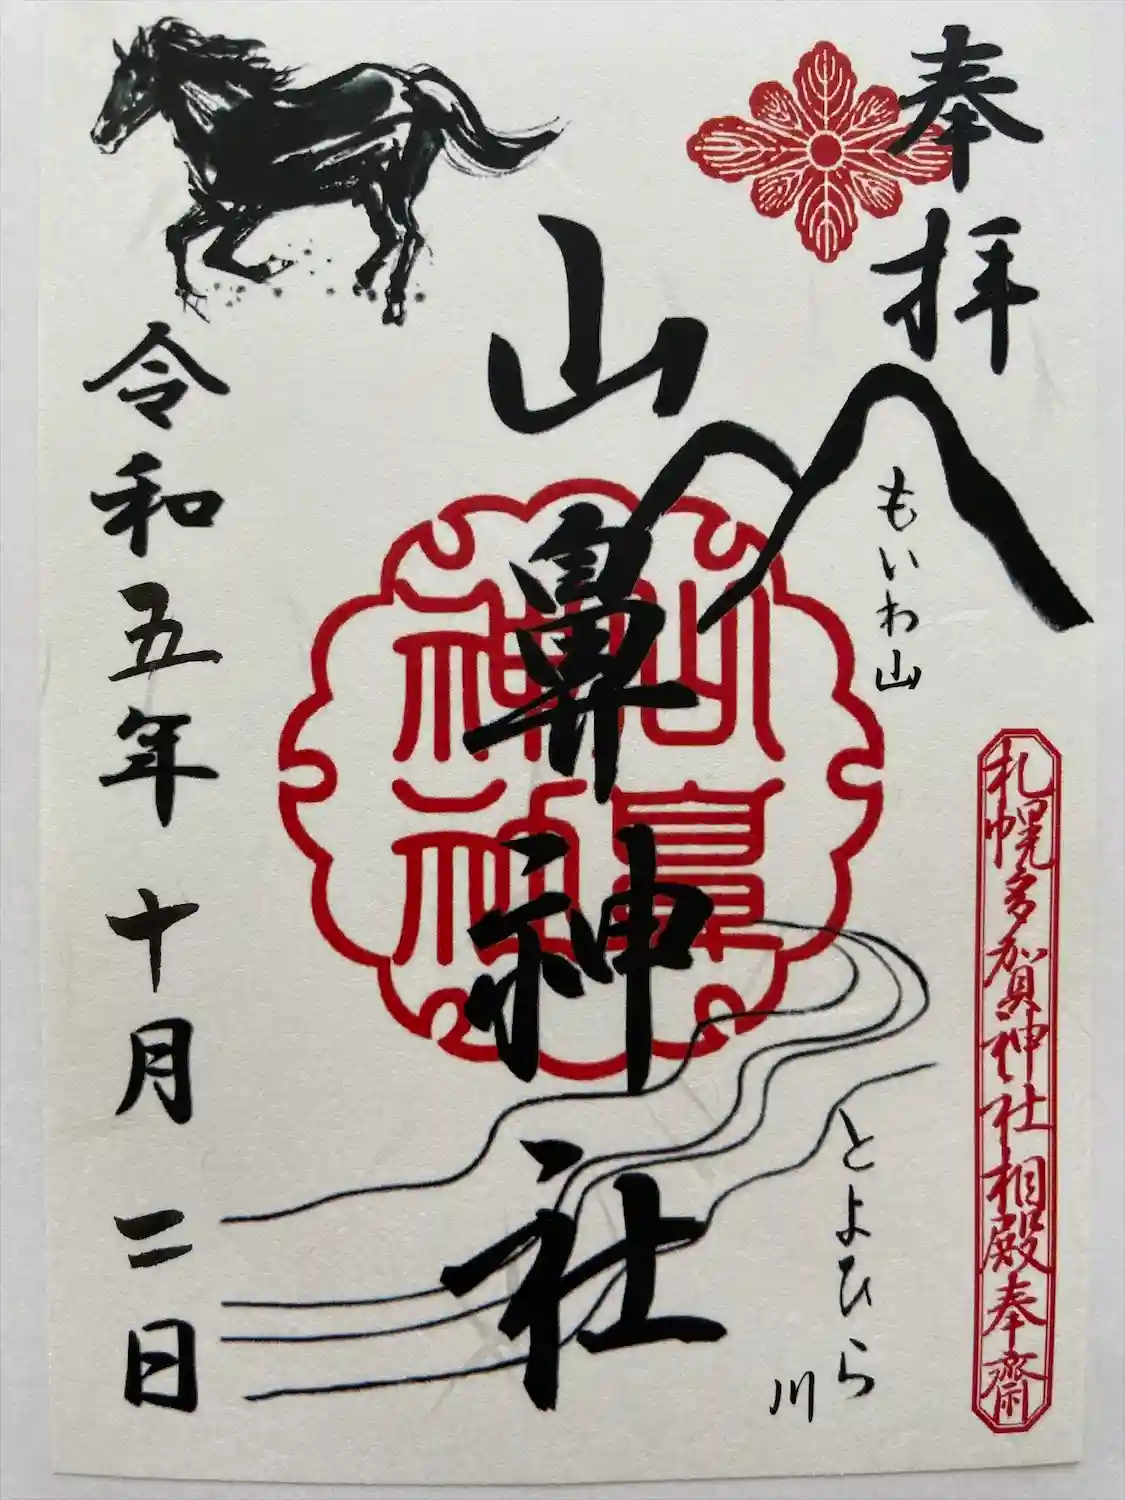 奉拝
もいわ山
札幌多賀神社相殿奉齋
とよひら川
山鼻神社
山鼻神社
令和五年十月二日